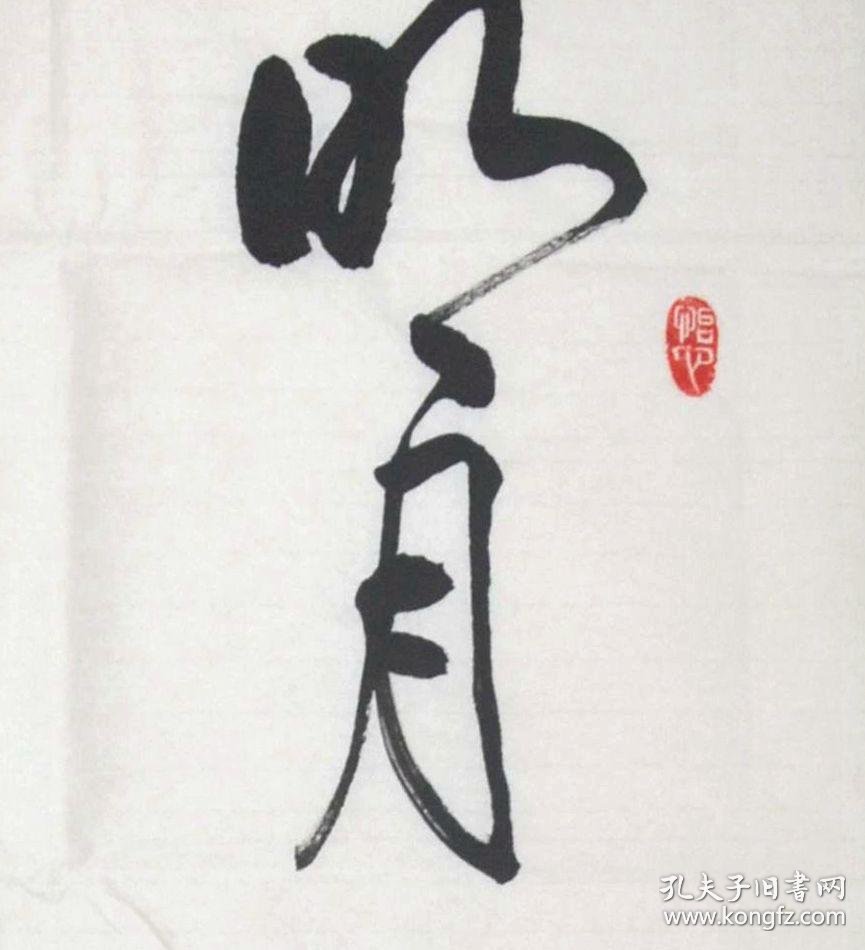 明月
孔夫子旧書网
www.kongfz.com